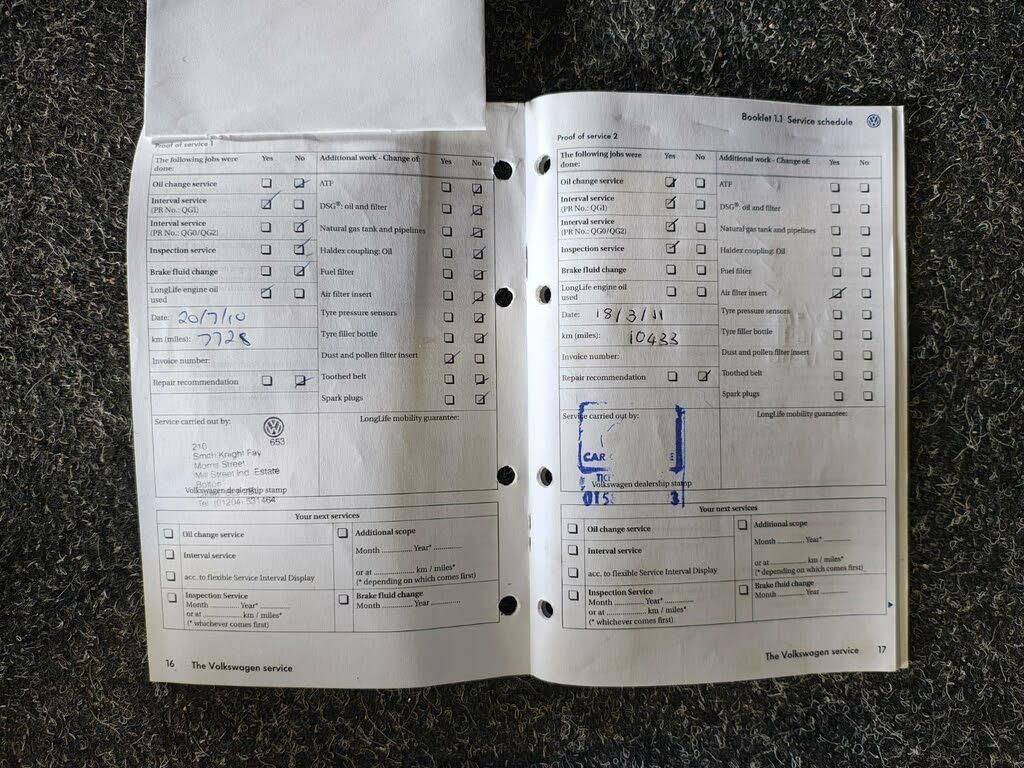 Proof of service 1
The following jobs were done: Yes No Additional work - Change of: Yes No
Oil change service ATF
Interval service (PR No.: QG1) DSG®: oil and filter
Interval service (PR No.: QG0/QG2) Natural gas tank and pipelines
Inspection service Haldex coupling: Oil
Brake fluid change Fuel filter
LongLife engine oil used Air filter insert
Date: 20/7/10 Tyre pressure sensors
km (miles): 7728 Tyre filler bottle
Invoice number: Dust and pollen filter insert
Repair recommendation Toothed belt
Spark plugs
Service carried out by: LongLife mobility guarantee:
653
210
Smith Knight Fay
Morris Street
Mill Street Ind. Estate
Bolton
Volkswagen dealership stamp
Tel: (01204) 531464
Your next services
Oil change service Additional scope
Month Year*
Interval service
or at km / miles*
acc. to flexible Service Interval Display (* depending on which comes first)
Inspection Service Brake fluid change
Month Year* Month Year
or at km / miles*
(* whichever comes first)
16 The Volkswagen service
Booklet 1.1 Service schedule
Proof of service 2
The following jobs were done: Yes No Additional work - Change of: Yes No
Oil change service ATF
Interval service (PR No.: QG1) DSG®: oil and filter
Interval service (PR No.: QG0/QG2) Natural gas tank and pipelines
Inspection service Haldex coupling: Oil
Brake fluid change Fuel filter
LongLife engine oil used Air filter insert
Date: 18/3/11 Tyre pressure sensors
km (miles): 10433 Tyre filler bottle
Invoice number: Dust and pollen filter insert
Repair recommendation Toothed belt
Spark plugs
Service carried out by: LongLife mobility guarantee:
CAR
Volkswagen dealership stamp
Your next services
Oil change service Additional scope
Month Year*
Interval service
or at km / miles*
acc. to flexible Service Interval Display (* depending on which comes first)
Inspection Service Brake fluid change
Month Year* Month Year
or at km / miles*
(* whichever comes first)
The Volkswagen service 17